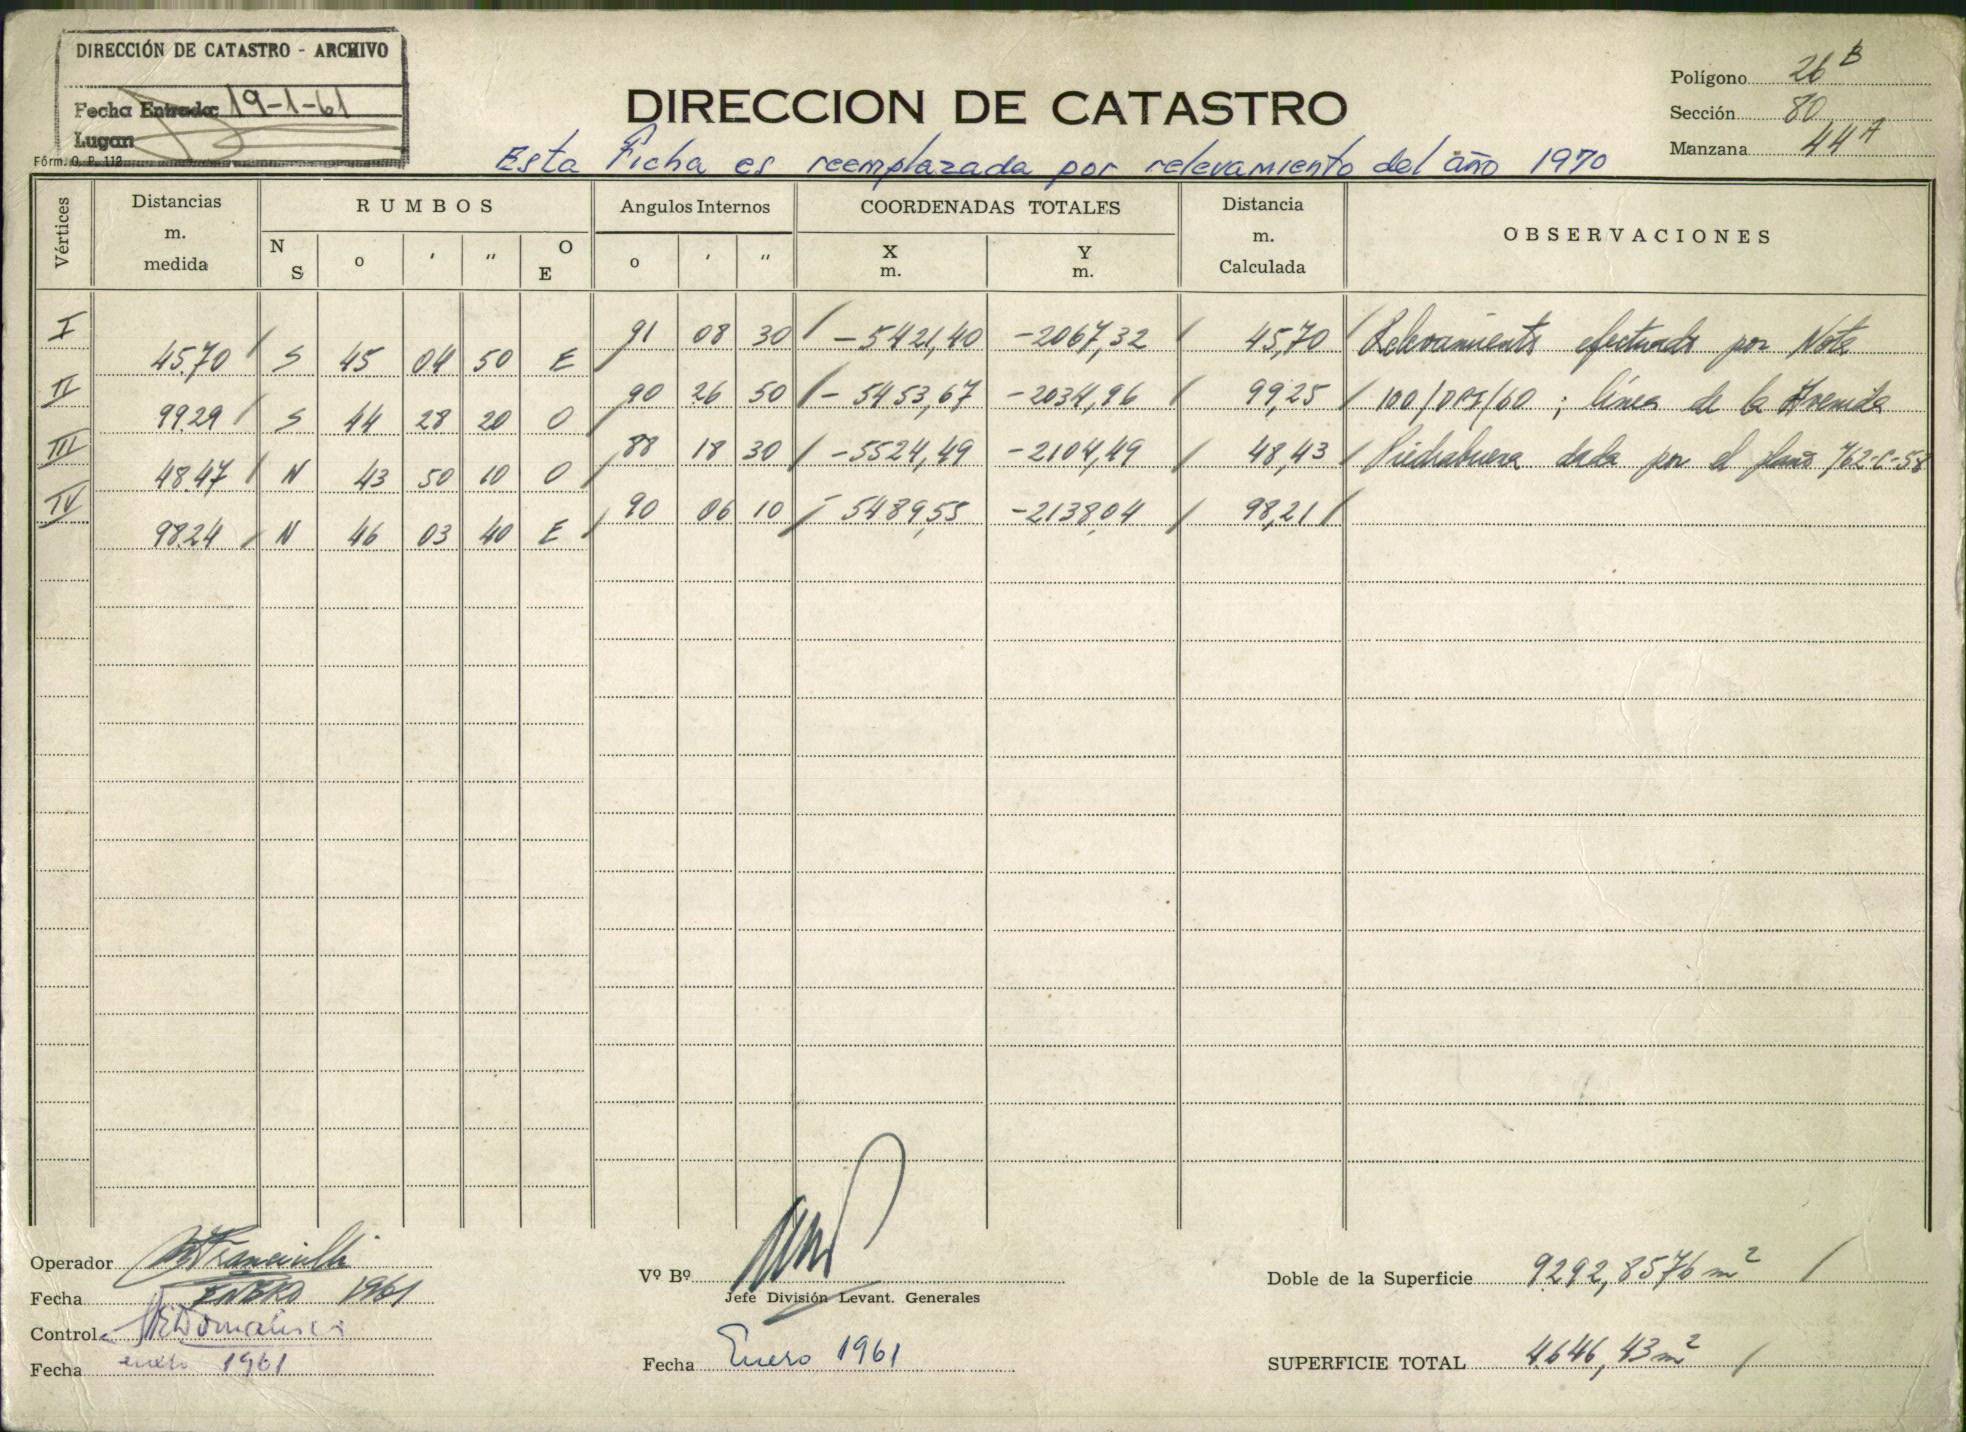 DIRECCIÓN DE CATASTRO - ARCHIVO
Fecha Entrada: 19-1-61
Lugar
Fórm. O. P. 112
DIRECCION DE CATASTRO
Polígono 26 B
Sección 80
Manzana 44 A
Esta Ficha es reemplazada por relevamiento del año 1970
Vértices
Distancias m. medida
RUMBOS
N S o ' " O E
Angulos Internos
o ' "
COORDENADAS TOTALES
X m. Y m.
Distancia m. Calculada
OBSERVACIONES
I 91 08 30 -5421,40 -2067,32 45,70 Relevamiento efectuado por Nota
45.70 S 45 04 50 E
II 90 26 50 -5453,67 -2034,96 99,25 100/DPI/60 ; línea de la Avenida
99.29 S 44 28 20 O
III 88 18 30 -5524,49 -2104,49 48,43 Piedrabuena dada por el plano 762-C-58
48.47 N 43 50 10 O
IV 90 06 10 -5489,55 -2138,04 98,21
98.24 N 46 03 40 E
Operador
Fecha ENERO 1961
Control
Fecha enero 1961
Vº Bº
Jefe División Levant. Generales
Fecha Enero 1961
Doble de la Superficie 9292,8576 m²
SUPERFICIE TOTAL 4646,43 m²